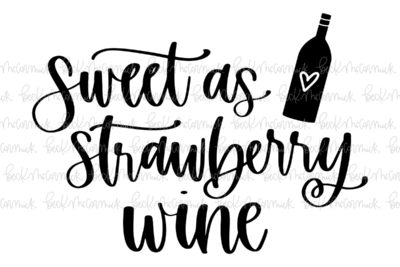 sweet as
strawberry
wine